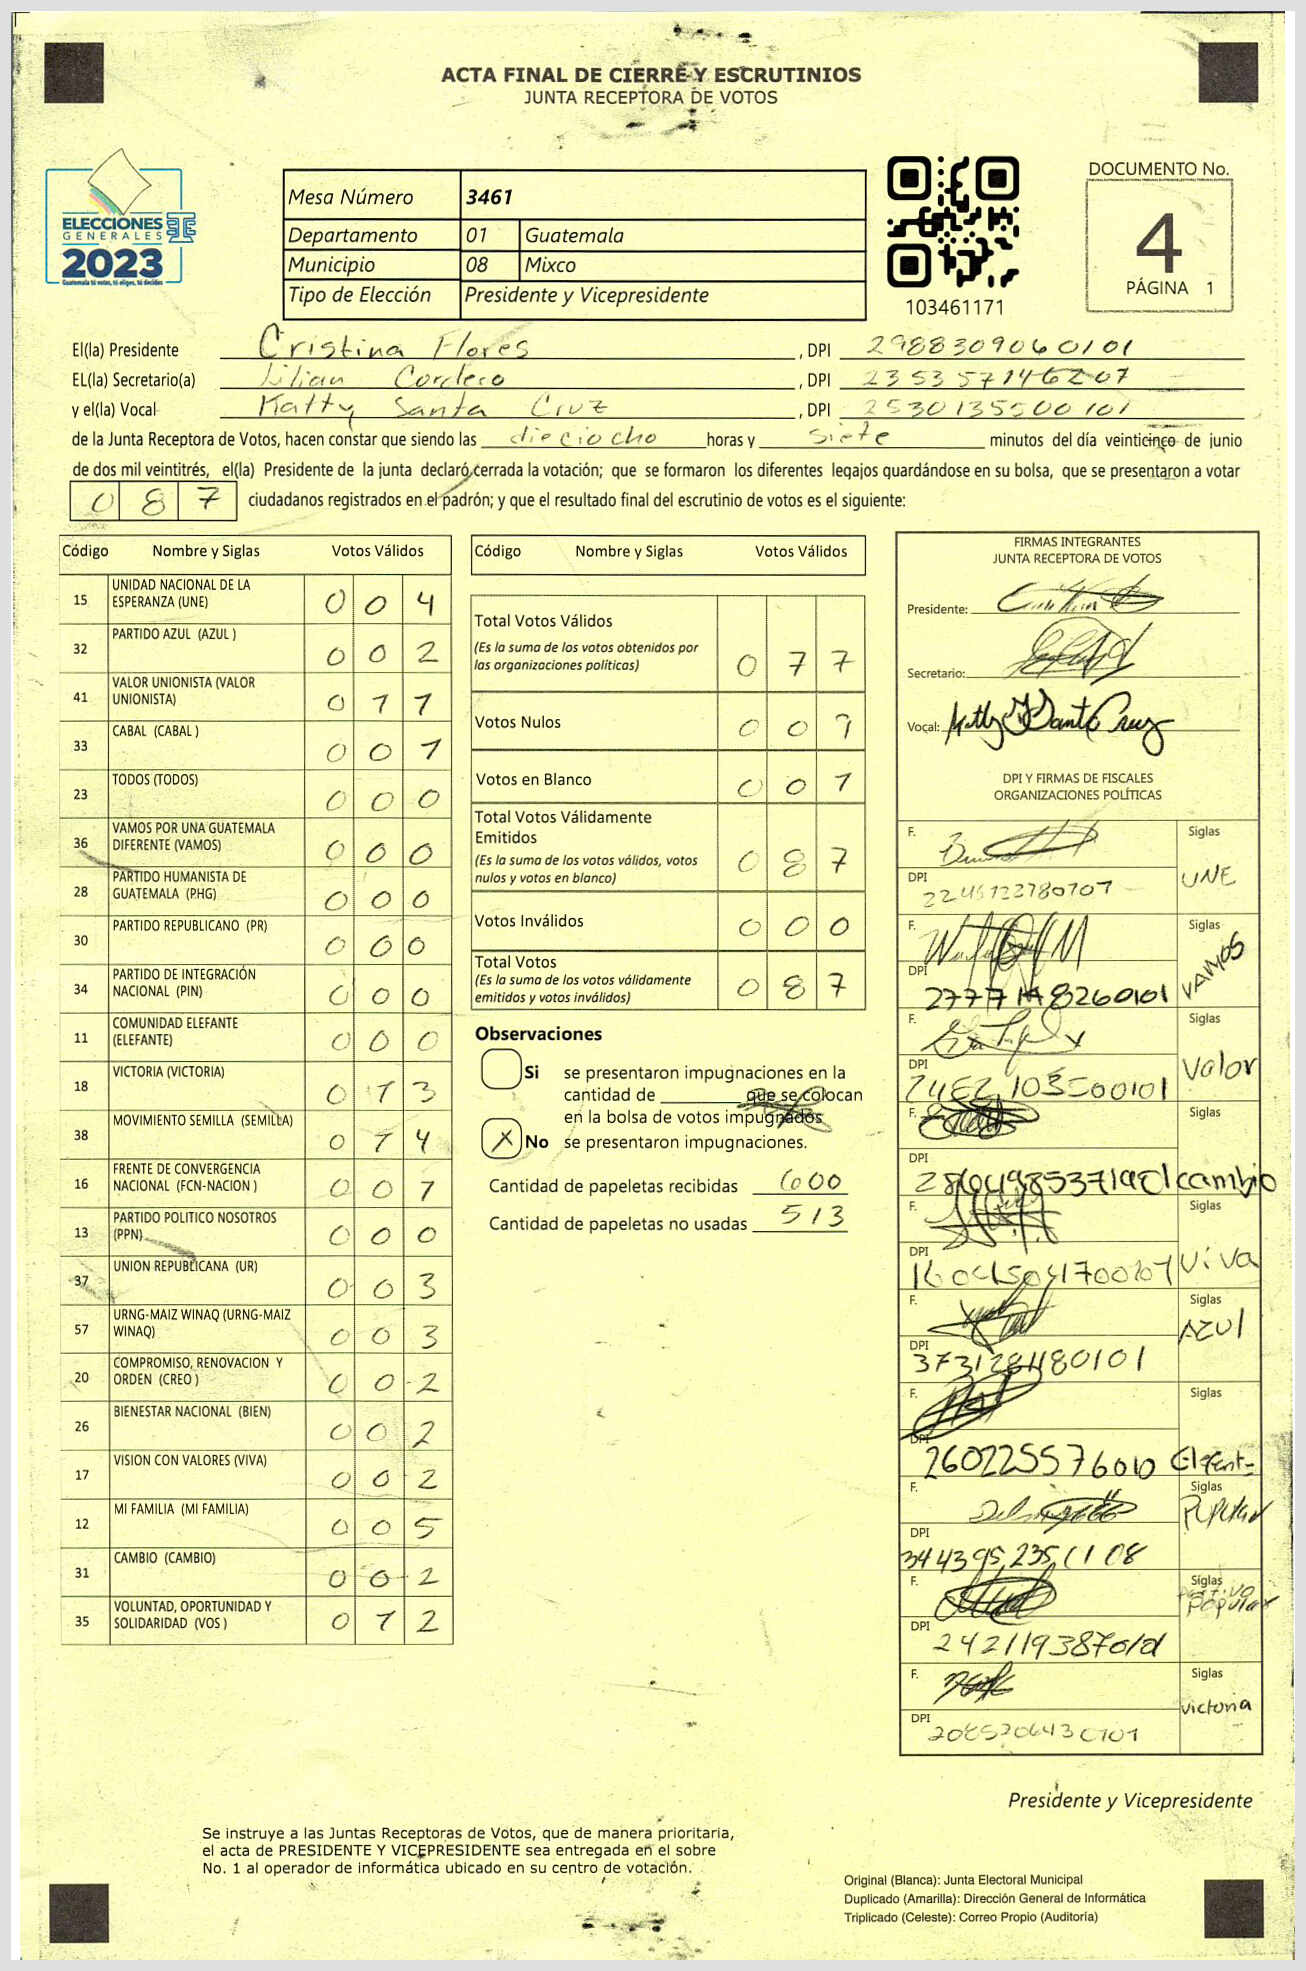 ACTA FINAL DE CIERRE Y ESCRUTINIOS
JUNTA RECEPTORA DE VOTOS
ELECCIONES
GENERALES
2023
Guatemala tú votas, tú eliges, tú decides
Mesa Número 3461
Departamento 01 Guatemala
Municipio 08 Mixco
Tipo de Elección Presidente y Vicepresidente
103461171
DOCUMENTO No.
4
PÁGINA 1
El(la) Presidente Cristina Flores , DPI 2988309060101
EL(la) Secretario(a) Lilian Cordero , DPI 2353571461207
y el(la) Vocal Katty Santa Cruz , DPI 2530135500101
de la Junta Receptora de Votos, hacen constar que siendo las dieciocho horas y siete minutos del día veinticinco de junio
de dos mil veintitrés, el(la) Presidente de la junta declaró cerrada la votación; que se formaron los diferentes legajos guardándose en su bolsa, que se presentaron a votar
087 ciudadanos registrados en el padrón; y que el resultado final del escrutinio de votos es el siguiente:
Código Nombre y Siglas Votos Válidos
15 UNIDAD NACIONAL DE LA ESPERANZA (UNE) 0 0 4
32 PARTIDO AZUL (AZUL ) 0 0 2
41 VALOR UNIONISTA (VALOR UNIONISTA) 0 1 1
33 CABAL (CABAL ) 0 0 1
23 TODOS (TODOS) 0 0 0
36 VAMOS POR UNA GUATEMALA DIFERENTE (VAMOS) 0 0 0
28 PARTIDO HUMANISTA DE GUATEMALA (PHG) 0 0 0
30 PARTIDO REPUBLICANO (PR) 0 0 0
34 PARTIDO DE INTEGRACIÓN NACIONAL (PIN) 0 0 0
11 COMUNIDAD ELEFANTE (ELEFANTE) 0 0 0
18 VICTORIA (VICTORIA) 0 1 3
38 MOVIMIENTO SEMILLA (SEMILLA) 0 1 4
16 FRENTE DE CONVERGENCIA NACIONAL (FCN-NACION ) 0 0 1
13 PARTIDO POLITICO NOSOTROS (PPN) 0 0 0
37 UNION REPUBLICANA (UR) 0 0 3
57 URNG-MAIZ WINAQ (URNG-MAIZ WINAQ) 0 0 3
20 COMPROMISO, RENOVACION Y ORDEN (CREO ) 0 0 2
26 BIENESTAR NACIONAL (BIEN) 0 0 2
17 VISION CON VALORES (VIVA) 0 0 2
12 MI FAMILIA (MI FAMILIA) 0 0 5
31 CAMBIO (CAMBIO) 0 0 2
35 VOLUNTAD, OPORTUNIDAD Y SOLIDARIDAD (VOS ) 0 1 2
Código Nombre y Siglas Votos Válidos
Total Votos Válidos
(Es la suma de los votos obtenidos por
las organizaciones políticas) 0 7 7
Votos Nulos 0 0 9
Votos en Blanco 0 0 1
Total Votos Válidamente
Emitidos
(Es la suma de los votos válidos, votos
nulos y votos en blanco) 0 8 7
Votos Inválidos 0 0 0
Total Votos
(Es la suma de los votos válidamente
emitidos y votos inválidos) 0 8 7
Observaciones
Si se presentaron impugnaciones en la
cantidad de ________ que se colocan
en la bolsa de votos impugnados
X No se presentaron impugnaciones.
Cantidad de papeletas recibidas 600
Cantidad de papeletas no usadas 513
FIRMAS INTEGRANTES
JUNTA RECEPTORA DE VOTOS
Presidente:
Secretario:
Vocal: Katty Santa Cruz
DPI Y FIRMAS DE FISCALES
ORGANIZACIONES POLÍTICAS
F. Siglas
DPI UNE
F. Siglas
DPI VAMOS
F. Siglas
DPI Valor
F. Siglas
DPI cambio
F. Siglas
DPI Viva
F. Siglas
DPI 3731281180101 AZUl
F. Siglas
DPI 260225576010 Elefante
F. Siglas
DPI 3443952351108
F. Siglas
DPI partido popular
F. Siglas
DPI victoria
Presidente y Vicepresidente
Se instruye a las Juntas Receptoras de Votos, que de manera prioritaria,
el acta de PRESIDENTE Y VICEPRESIDENTE sea entregada en el sobre
No. 1 al operador de informática ubicado en su centro de votación.
Original (Blanca): Junta Electoral Municipal
Duplicado (Amarilla): Dirección General de Informática
Triplicado (Celeste): Correo Propio (Auditoría)